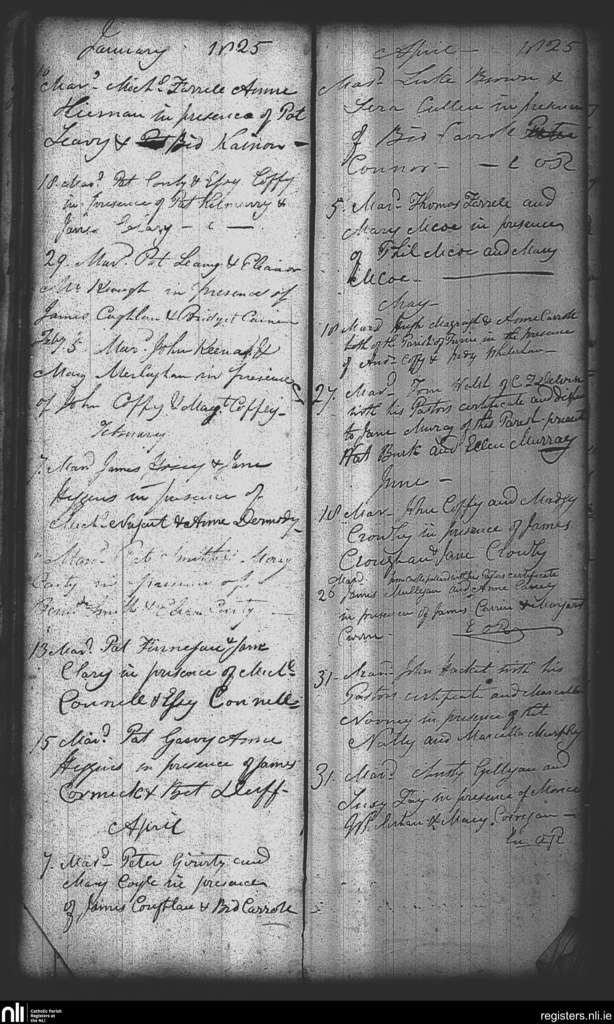 January 1825
Mard. Michl. Farrele Anne
Hieman in presence of Pat
Leavy & Bid Kainon
18 Mard. Pat Conly & Essy Coffy
in presence of Pat Kilmurry &
Jane Leary
29. Mard. Pat Leavy & Eleanor
McKeough in presence of
James Coghlan & Bridget
Feby. 5 Mard. John Keenan &
Mary in presence
of John Coffy & Magt Coffey
February
7. Mard James & Jane
Higgins in presence of
Michl. Nugent & Anne Dermody
Mard. Pat Smith & Mary
in presence of
Smith & Ellen
13 Mard. Pat Finnegan & Jane
Clary in presence of Michl.
Connell & Essy Connell
15 Mard. Pat Garvy Anne
Higgins in presence of James
Cormick & Bet Duff
April
7. Mard. Peter and
Mary Coyle in presence
of James Coughlan & Bid Carrole
April 1825
Mard. Luke Brown &
Cullen in presence
of Bid Carrole
Connor
5. Mard. Thomas Farrele and
Mary McCoe in presence
of Phil McCoe and Mary
McCoe
May
18 Mard Hugh Magrath & Anne Carrole
both of the Parish of in the presence
of Andw. Coffy &
27. Mard. Tom Walsh of
with his Pastors certificate and
to Jane Murray of this Parish present
Pat Burk and Ellen Murray
June
18. Mard John Coffy and Madgy
Crowly in presence of James
Croughan & Jane Crowly
Mard. with his Pastors certificate
26 James Mulligan and Anne
in presence of James & Margaret
31. Mard. John Hacket with his
Pastors certificate and Marcella
Nooney in presence of Pat
Nally and Marcella Murphy
31. Mard. Gillgan and
Fay in presence of
& Mary Corrigan
nli
Catholic Parish
Registers at
the NLI
registers.nli.ie